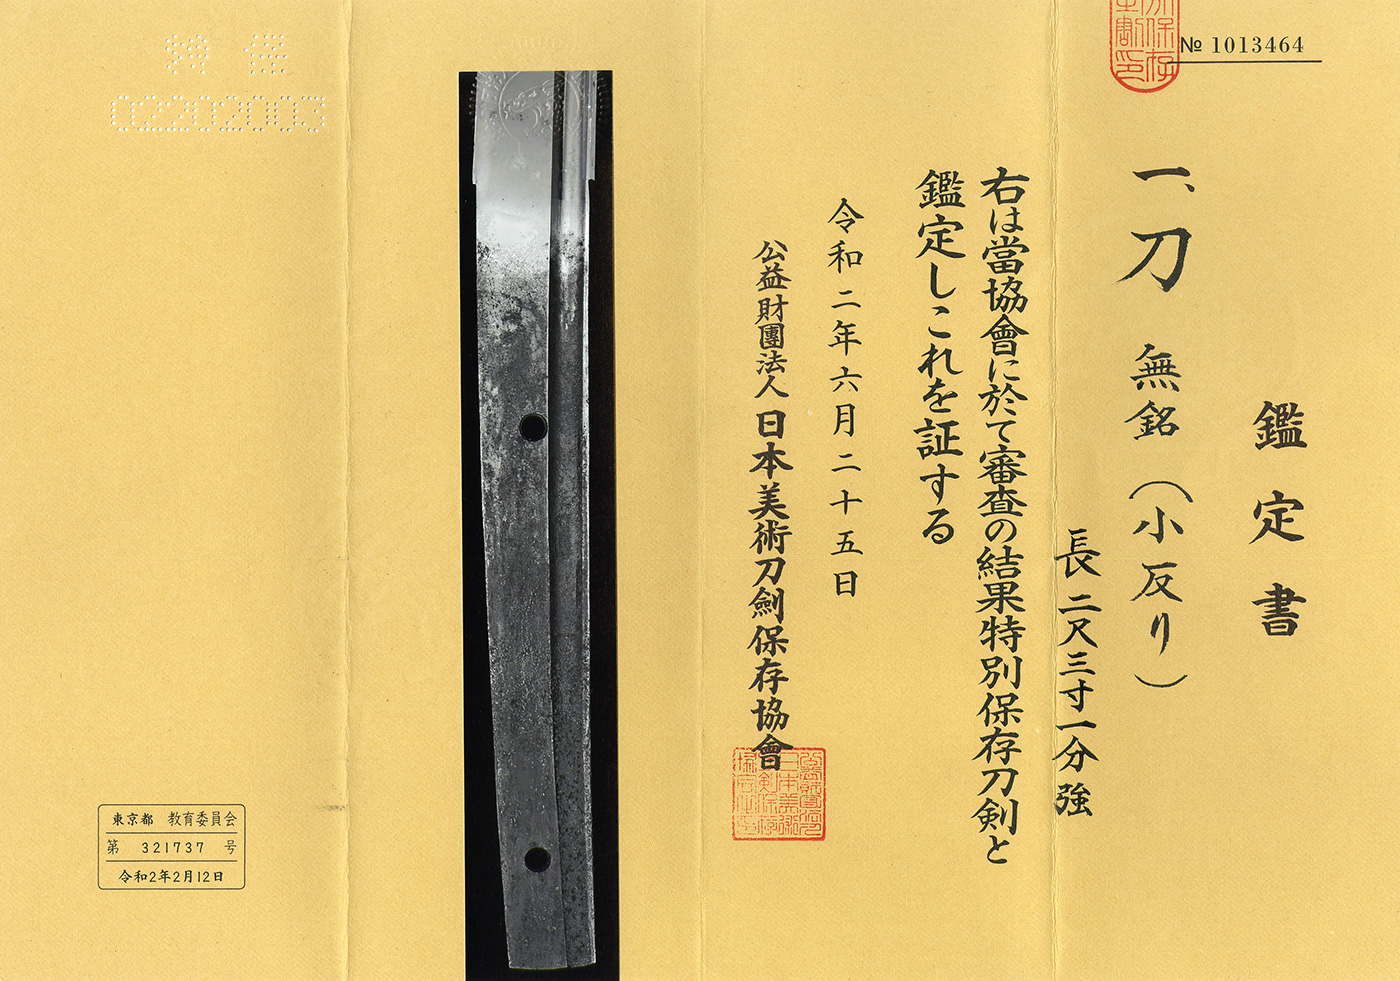 № 1013464
鑑定書
一、刀 無銘(小反り)
長二尺三寸一分強
右は當協會に於て審査の結果特別保存刀剣と
鑑定しこれを証する
令和二年六月二十五日
公益財團法人 日本美術刀劍保存協會
特保
02202003
東京都 教育委員会
第 321737 号
令和2年2月12日